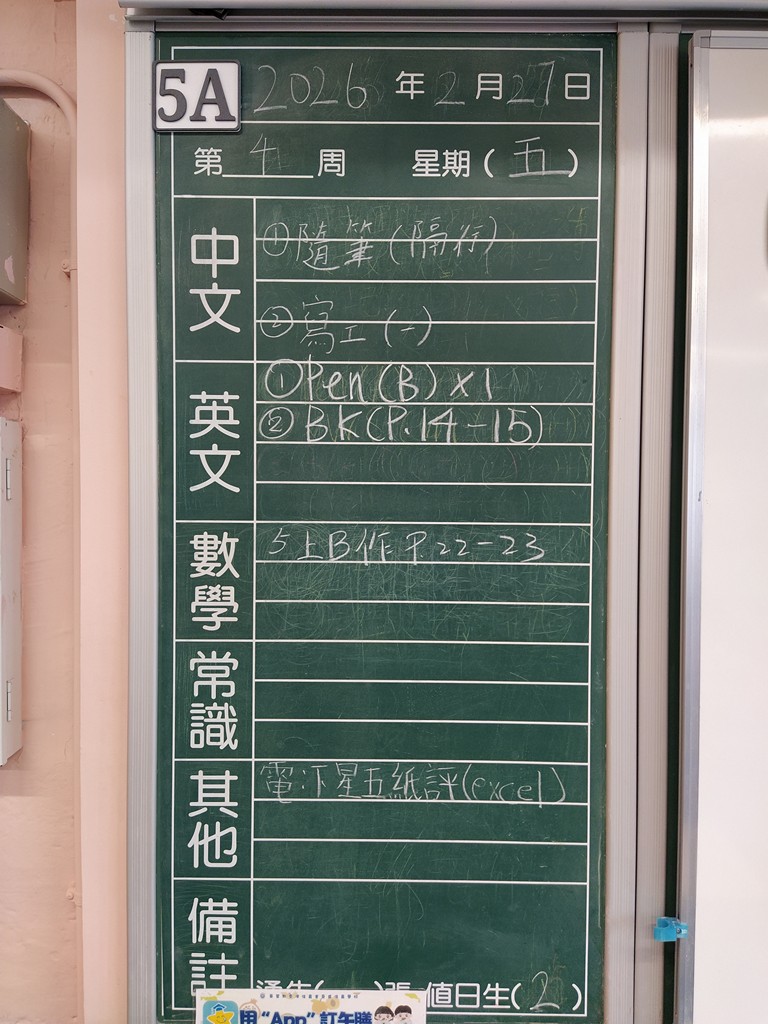 5A 2026 年 2 月 27 日
第 4 周 星期 (五)
中文
① 隨筆 (隔行)
② 寫工 (一)
英文
① Pen (B) x 1
② BK (P.14-15)
數學
5上B作 P.22-23
常識
其他
電:下星五紙評(excel)
備註
通告( )張 值日生(2)
用“App”訂午膳